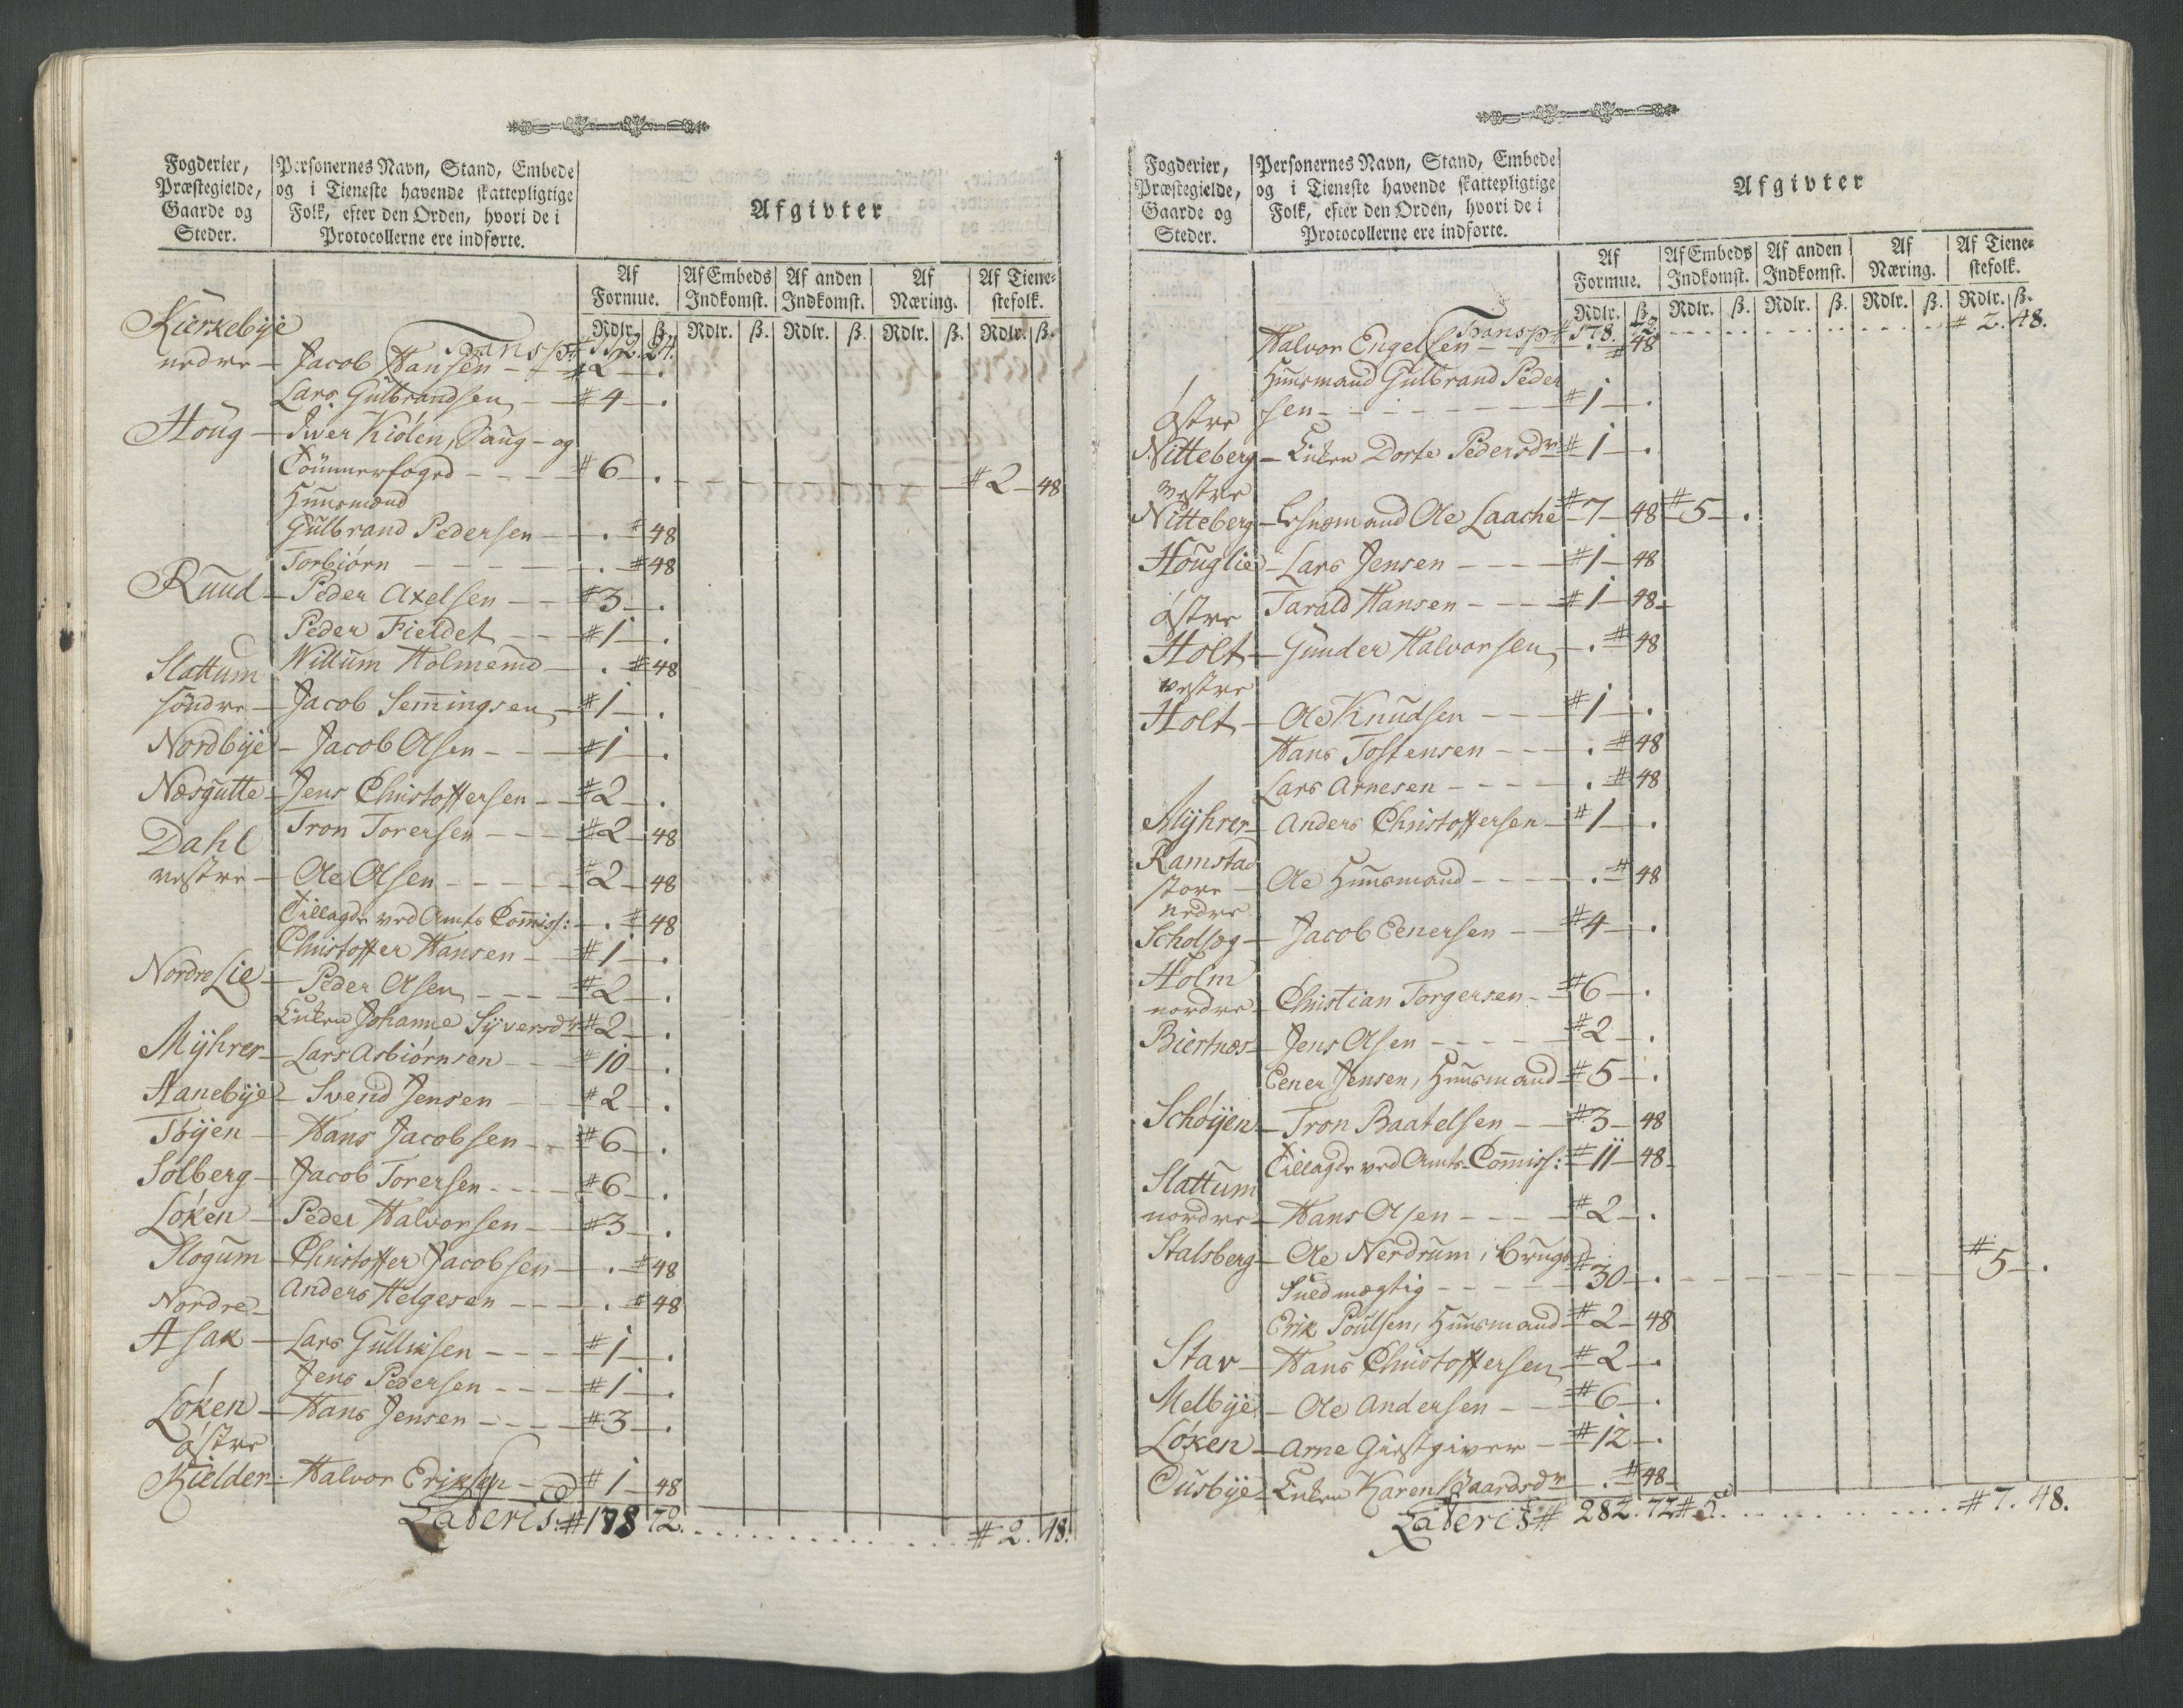 Fogderier, Præstegielde, Gaarde og Steder.
Personernes Navn, Stand, Embede og i Tieneste havende skattepligtige Folk, efter den Orden, hvori de i Protocollerne ere indførte.
Afgivter
Af Formue. Af Embeds Indkomst. Af anden Indkomst. Af Næring. Af Tienestefolk.
Rdlr. ß. Rdlr. ß. Rdlr. ß. Rdlr. ß. Rdlr. ß.
Transp: # 112. 24.
Kierkebÿe
nedre - Jacob Hansen - # 2 - .
Lars Gulbrandsen - # 4 - .
Houg - Iver Kiölen, Saug- og
Tömmerfoged - # 6 . - # 2 - 48
Huusmænd
Gulbrand Pedersen - . # 48
Torbiörn - . # 48
Ruud - Peder Axelsen - # 3 - .
Peder Fieldet - # 1 - .
Slattum Willum Holmend - . # 48
söndre - Jacob Semingsen - # 1 - .
Nordbÿe - Jacob Olsen - # 1 - .
Næsgutte - Jens Christoffersen - # 2 - .
Dahl Tron Torersen - # 2 - 48
vestre - Ole Olsen - # 2 - 48
Tillagde ved Amts Comiss: - . # 48
Christoffer Hansen - # 1 - .
Nordre Lie - Peder Olsen - # 2 - .
Enken Johanne Sÿversdr # 2 - .
Mÿhrer - Lars Asbiörnsen - # 10 - .
Hanebÿe - Svend Jensen - # 2 - .
Töÿen - Hans Jacobsen - # 6 - .
Solberg - Jacob Torersen - # 6 - .
Löken - Peder Halvorsen - # 3 - .
Slogum - Christoffer Jacobsen - . # 48
Anders Helgesen - . # 48
Nordre
Asak - Lars Gulliksen - # 1 - .
Jens Pedersen - # 1 - .
Löken - Hans Jensen - # 3 - .
östre
Kielder - Halvor Eriksen - # 1 - 48
Lateris: # 178 72. # 2. 48.
Fogderier, Præstegielde, Gaarde og Steder.
Personernes Navn, Stand, Embede og i Tieneste havende skattepligtige Folk, efter den Orden, hvori de i Protocollerne ere indførte.
Afgivter
Af Formue. Af Embeds Indkomst. Af anden Indkomst. Af Næring. Af Tienestefolk.
Rdlr. ß. Rdlr. ß. Rdlr. ß. Rdlr. ß. Rdlr. ß.
Transp # 178. 72. # 2. 48.
Halvor Engelsen - . # 48
Huusmand Gulbrand Peder
sen - # 1 - .
östre
Nitteberg - Enken Dorte Pedersdr # 1 - .
vestre
Nitteberg - Lehnsmand Ole Laache # 7 - 48 # 5 - .
Houglie - Lars Jensen - # 1 - 48
Tarald Hansen - # 1 - 48
östre
Holt - Gunder Halvorsen - . # 48
vestre
Holt - Ole Knudsen - # 1 - .
Hans Tostensen - . # 48
Lars Arnesen - . # 48
Mÿhrer - Anders Christoffersen - # 1 - .
Ramstad
store - Ole Huusmand - . # 48
nedre
Scholseg - Jacob Eenersen - # 4 - .
Holm
nordre - Christian Torgersen - # 6 - .
Biertnæs - Jens Olsen - # 2 - .
Eener Jensen, Huusmand # 5 - .
Schöÿen - Tron Baatelsen - # 3 - 48
Tillagde ved Amts-Comiss: # 11 - 48
Slattum
nordre - Hans Olsen - # 2 - .
Stalsberg - Ole Nerdrum, Brugs
Fuldmægtig - # 30 - . # 5 - .
Erik Poulsen, Huusmand # 2 - 48
Stav - Hans Christoffersen # 2 - .
Melbÿe - Ole Andersen - # 6 - .
Löken - Arne Giestgiver - # 12 - .
Ousbÿe - Enken Karen Gaardsdr - . # 48
Lateris # 282. 72 # 5. # 7. 48.